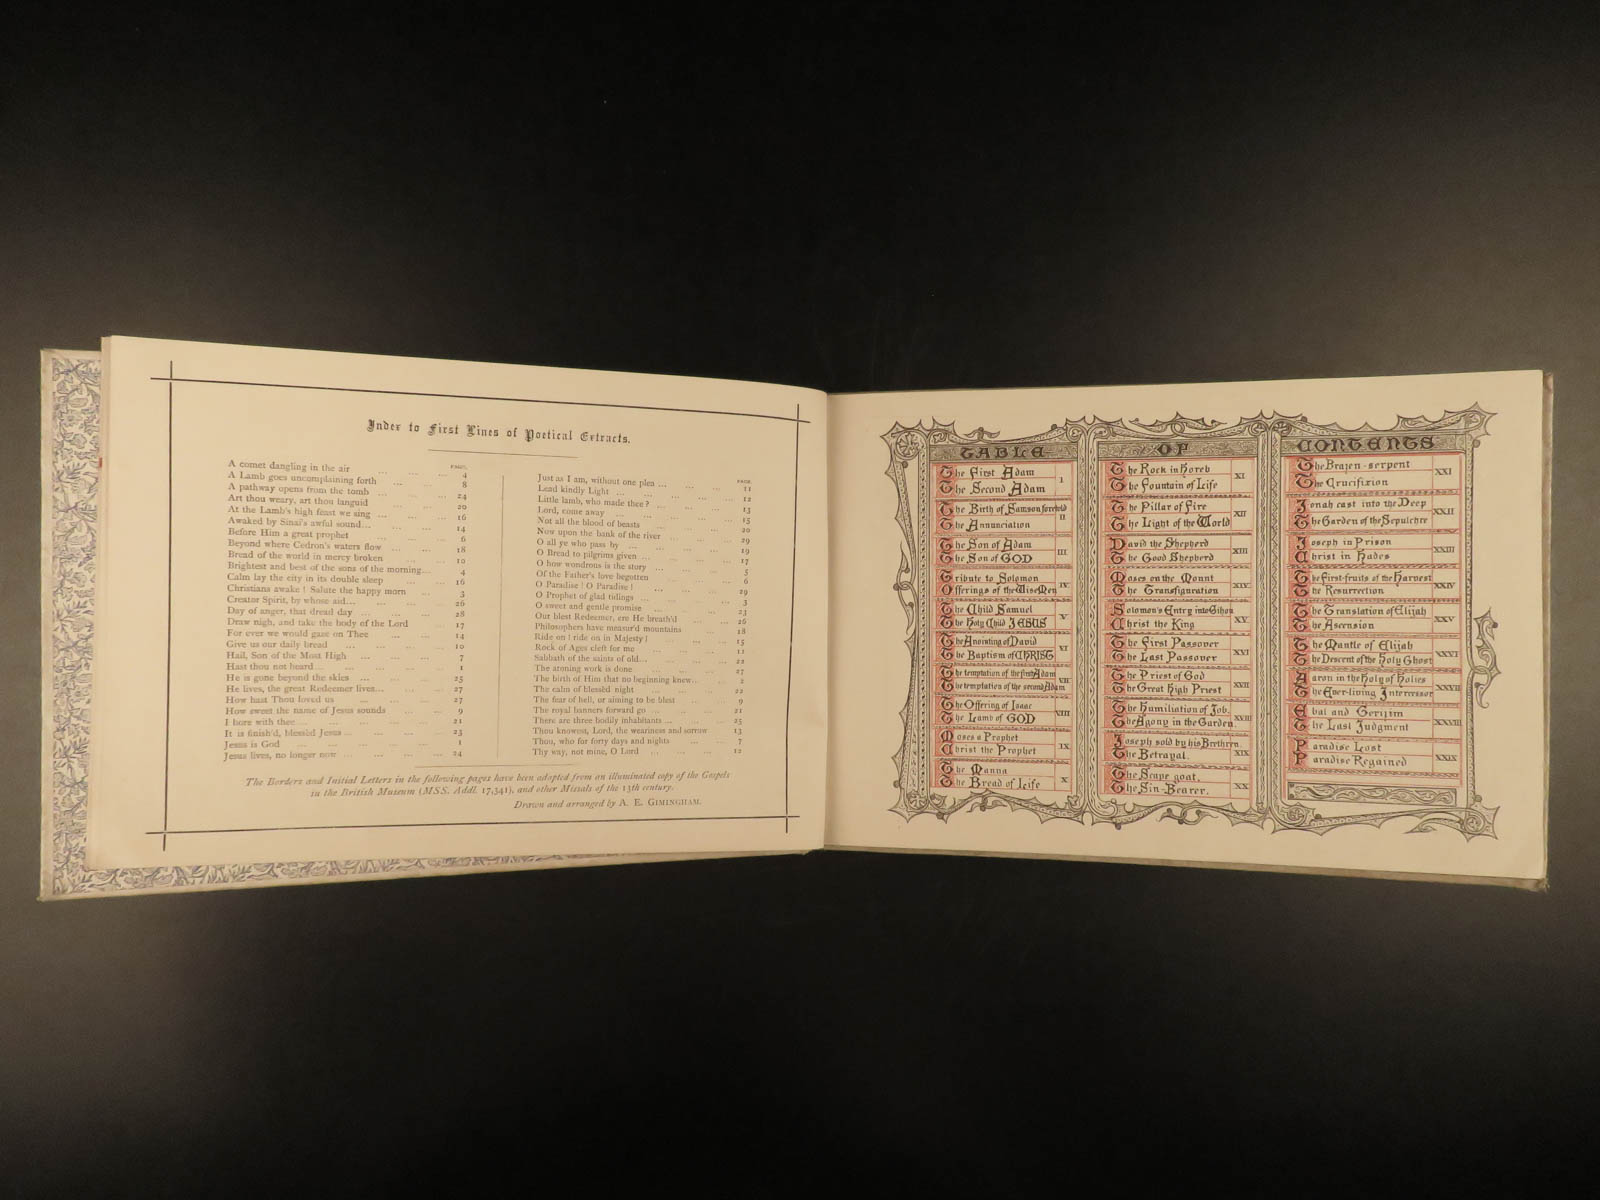 Index to First Lines of Poetical Extracts.
PAGE.
A comet dangling in the air ... ... ... 4
A Lamb goes uncomplaining forth ... ... 8
A pathway opens from the tomb ... ... ... 24
Art thou weary, art thou languid ... ... 20
At the Lamb's high feast we sing ... ... ... 16
Awaked by Sinai's awful sound... ... ... 14
Before Him a great prophet ... ... ... 6
Beyond where Cedron's waters flow ... ... 18
Bread of the world in mercy broken ... ... 10
Brightest and best of the sons of the morning... 4
Calm lay the city in its double sleep ... ... 16
Christians awake! Salute the happy morn ... 3
Creator Spirit, by whose aid... ... ... 26
Day of anger, that dread day ... ... ... 28
Draw nigh, and take the body of the Lord ... 17
For ever we would gaze on Thee ... ... 14
Give us our daily bread ... ... ... ... 10
Hail, Son of the Most High ... ... ... 7
Hast thou not heard ... ... ... ... 1
He is gone beyond the skies ... ... ... 25
He lives, the great Redeemer lives... ... ... 27
How hast Thou loved us ... ... ... ... 27
How sweet the name of Jesus sounds ... ... 9
I bore with thee ... ... ... ... ... 21
It is finish'd, blessèd Jesus ... ... ... ... 23
Jesus is God ... ... ... ... ... 1
Jesus lives, no longer now ... ... ... ... 24
PAGE.
Just as I am, without one plea ... ... ... 11
Lead kindly Light ... ... ... ... ... 12
Little lamb, who made thee? ... ... ... 13
Lord, come away ... ... ... ... ... 15
Not all the blood of beasts ... ... ... 20
Now upon the bank of the river ... ... ... 29
O all ye who pass by ... ... ... ... 19
O Bread to pilgrims given ... ... ... ... 17
O how wondrous is the story ... ... ... 5
Of the Father's love begotten ... ... ... 6
O Paradise! O Paradise! ... ... ... ... 29
O Prophet of glad tidings ... ... ... ... 3
O sweet and gentle promise ... ... ... 23
Our blest Redeemer, ere He breath'd ... ... 26
Philosophers have measur'd mountains ... 18
Ride on! ride on in Majesty! ... ... ... 15
Rock of Ages cleft for me ... ... ... 11
Sabbath of the saints of old... ... ... ... 22
The atoning work is done ... ... ... 27
The birth of Him that no beginning knew... ... 2
The calm of blessèd night ... ... ... 22
The fear of hell, or aiming to be blest ... ... 9
The royal banners forward go ... ... ... 21
There are three bodily inhabitants ... ... ... 25
Thou knowest, Lord, the weariness and sorrow 13
Thou, who for forty days and nights ... ... 7
Thy way, not mine, O Lord ... ... ... 12
The Borders and Initial Letters in the following pages have been adopted from an illuminated copy of the Gospels
in the British Museum (MSS. Addl. 17,341), and other Missals of the 13th century.
Drawn and arranged by A. E. GIMINGHAM.
TABLE OF CONTENTS
The First Adam
The Second Adam I
The Birth of Samson foretold
The Annunciation II
The Son of Adam
The Son of GOD III
Tribute to Solomon
Offerings of the Wise Men IV
The Child Samuel
The Holy Child JESUS V
The Anointing of David
The Baptism of CHRIST VI
The temptation of the first Adam
The temptation of the second Adam VII
The Offering of Isaac
The Lamb of GOD VIII
Moses a Prophet
Christ the Prophet IX
The Manna
The Bread of Life X
The Rock in Horeb
The Fountain of Life XI
The Pillar of Fire
The Light of the World XII
David the Shepherd
The Good Shepherd XIII
Moses on the Mount
The Transfiguration XIV
Solomon's Entry into Gihon
Christ the King XV
The First Passover
The Last Passover XVI
The Priest of God
The Great High Priest XVII
The Humiliation of Job.
The Agony in the Garden XVIII
Joseph sold by his Brethren.
The Betrayal. XIX
The Scape goat.
The Sin-Bearer. XX
The Brazen-serpent
The Crucifixion XXI
Jonah cast into the Deep
The Garden of the Sepulchre XXII
Joseph in Prison
Christ in Hades XXIII
The First-fruits of the Harvest
The Resurrection XXIV
The Translation of Elijah
The Ascension XXV
The Mantle of Elijah
The Descent of the Holy Ghost XXVI
Aaron in the Holy of Holies
The Ever-living Intercessor XXVII
Ebal and Gerizim
The Last Judgment XXVIII
Paradise Lost
Paradise Regained XXIX